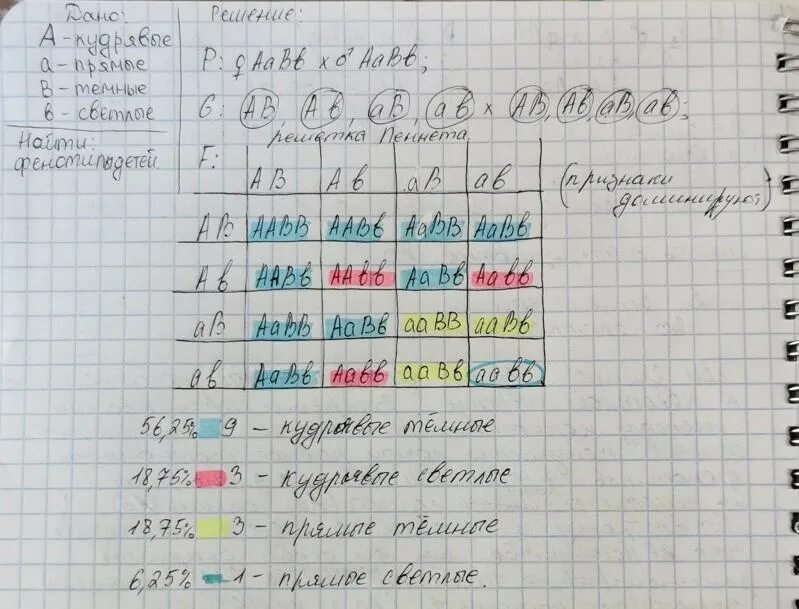 Дано:
А - кудрявые
а - прямые
В - темные
в - светлые
Найти:
фенотипы детей.
Решение:
Р: ♀ АаВв х ♂ АаВв;
G: АВ, Ав, аВ, ав х АВ, Ав, аВ, ав;
решётка Пеннета.
F:
АВ Ав аВ ав
(признаки доминируют)
АВ ААВВ ААВв АаВВ АаВв
Ав ААВв ААвв АаВв Аавв
аВ АаВВ АаВв ааВВ ааВв
ав АаВв Аавв ааВв аавв
56,25% 9 - кудрявые тёмные
18,75% 3 - кудрявые светлые
18,75% 3 - прямые тёмные
6,25% 1 - прямые светлые.